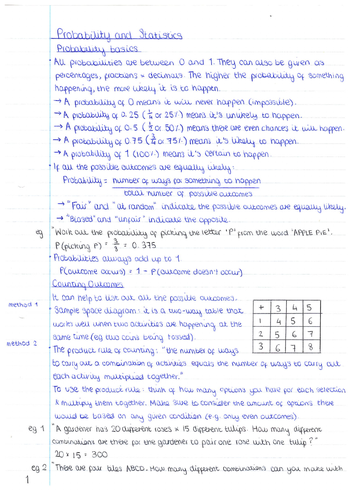 Probability and Statistics
Probability basics
• All probabilities are between 0 and 1. They can also be given as
percentages, fractions + decimals. The higher the probability of something
happening, the more likely it is to happen.
→ A probability of 0 means it will never happen (impossible).
→ A probability of 0.25 (1/4 or 25%) means it's unlikely to happen.
→ A probability of 0.5 (1/2 or 50%) means there are even chances it will happen.
→ A probability of 0.75 (3/4 or 75%) means it's likely to happen.
→ A probability of 1 (100%) means it's certain to happen.
• If all the possible outcomes are equally likely:
Probability = number of ways for something to happen
total number of possible outcomes
→ "Fair" and "at random" indicate the possible outcomes are equally likely.
→ "Biased" and "unfair" indicate the opposite.
eg "Work out the probability of picking the letter 'P' from the word 'APPLE PIE'.
P(picking P) = 3/8 = 0.375
• Probabilities always add up to 1
P(outcome occurs) = 1 - P(outcome doesn't occur)
Counting Outcomes
It can help to list out all the possible outcomes.
method 1 • Sample space diagram: it is a two-way table that
works well when two activities are happening at the
same time (eg two coins being tossed).
+ 3 4 5
1 4 5 6
2 5 6 7
3 6 7 8
method 2 • The product rule of counting: "the number of ways
to carry out a combination of activities equals the number of ways to carry out
each activity multiplied together."
To use the product rule: think of how many options you have for each selection
& multiply them together. Make sure to consider the amount of options there
would be based on any given condition (e.g. any even outcomes).
eg.1 "A gardener has 20 different roses & 15 different tulips. How many different
combinations are there for the gardener to pair one rose with one tulip?"
20 x 15 = 300
eg.2 "There are four tiles ABCD. How many different combinations can you make with
1